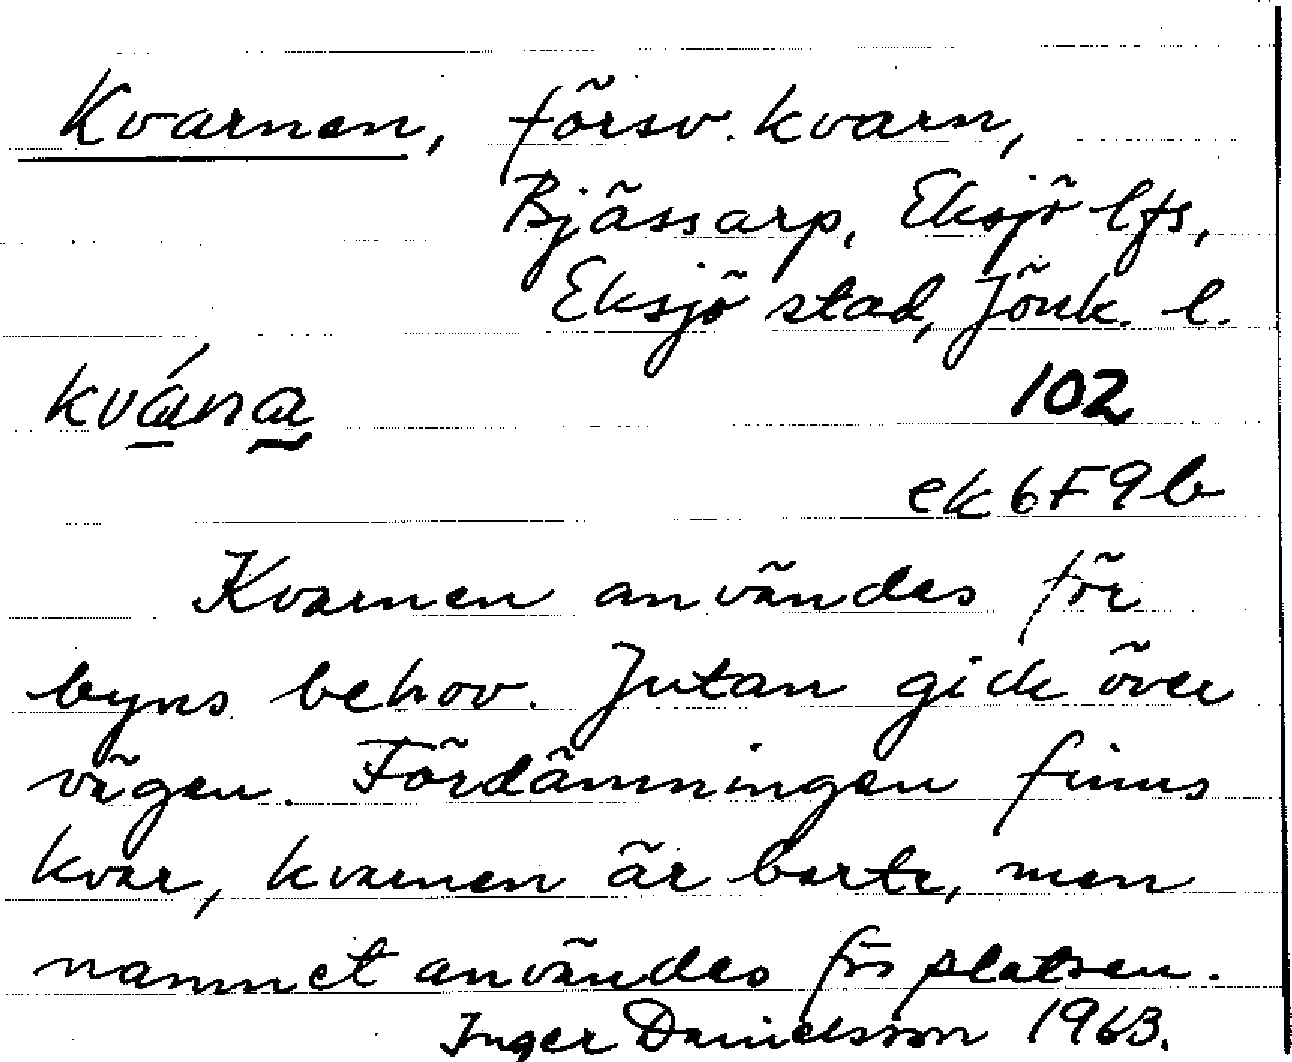 Kvarnen, försv. kvarn,
Bjässarp, Eksjö lfs,
Eksjö stad, Jönk. l.
102
ek 6F9b
Kvarnen användes för
byns behov. Jutan gick över
vägen. Fördämningen finns
kvar, kvarnen är borta, men
namnet användes för platsen.
Inger Danielsson 1963.